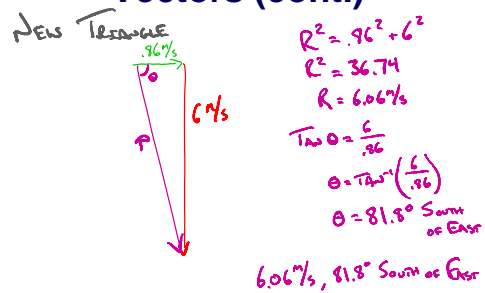 Vectors (cont.)
NEW TRIANGLE
.86m/s
θ
6 m/s
R
R² = .86² + 6²
R² = 36.74
R = 6.06m/s
TAN θ = 6/.86
θ = TAN⁻¹(6/.86)
θ = 81.8° SOUTH
OF EAST
6.06m/s, 81.8° SOUTH OF EAST